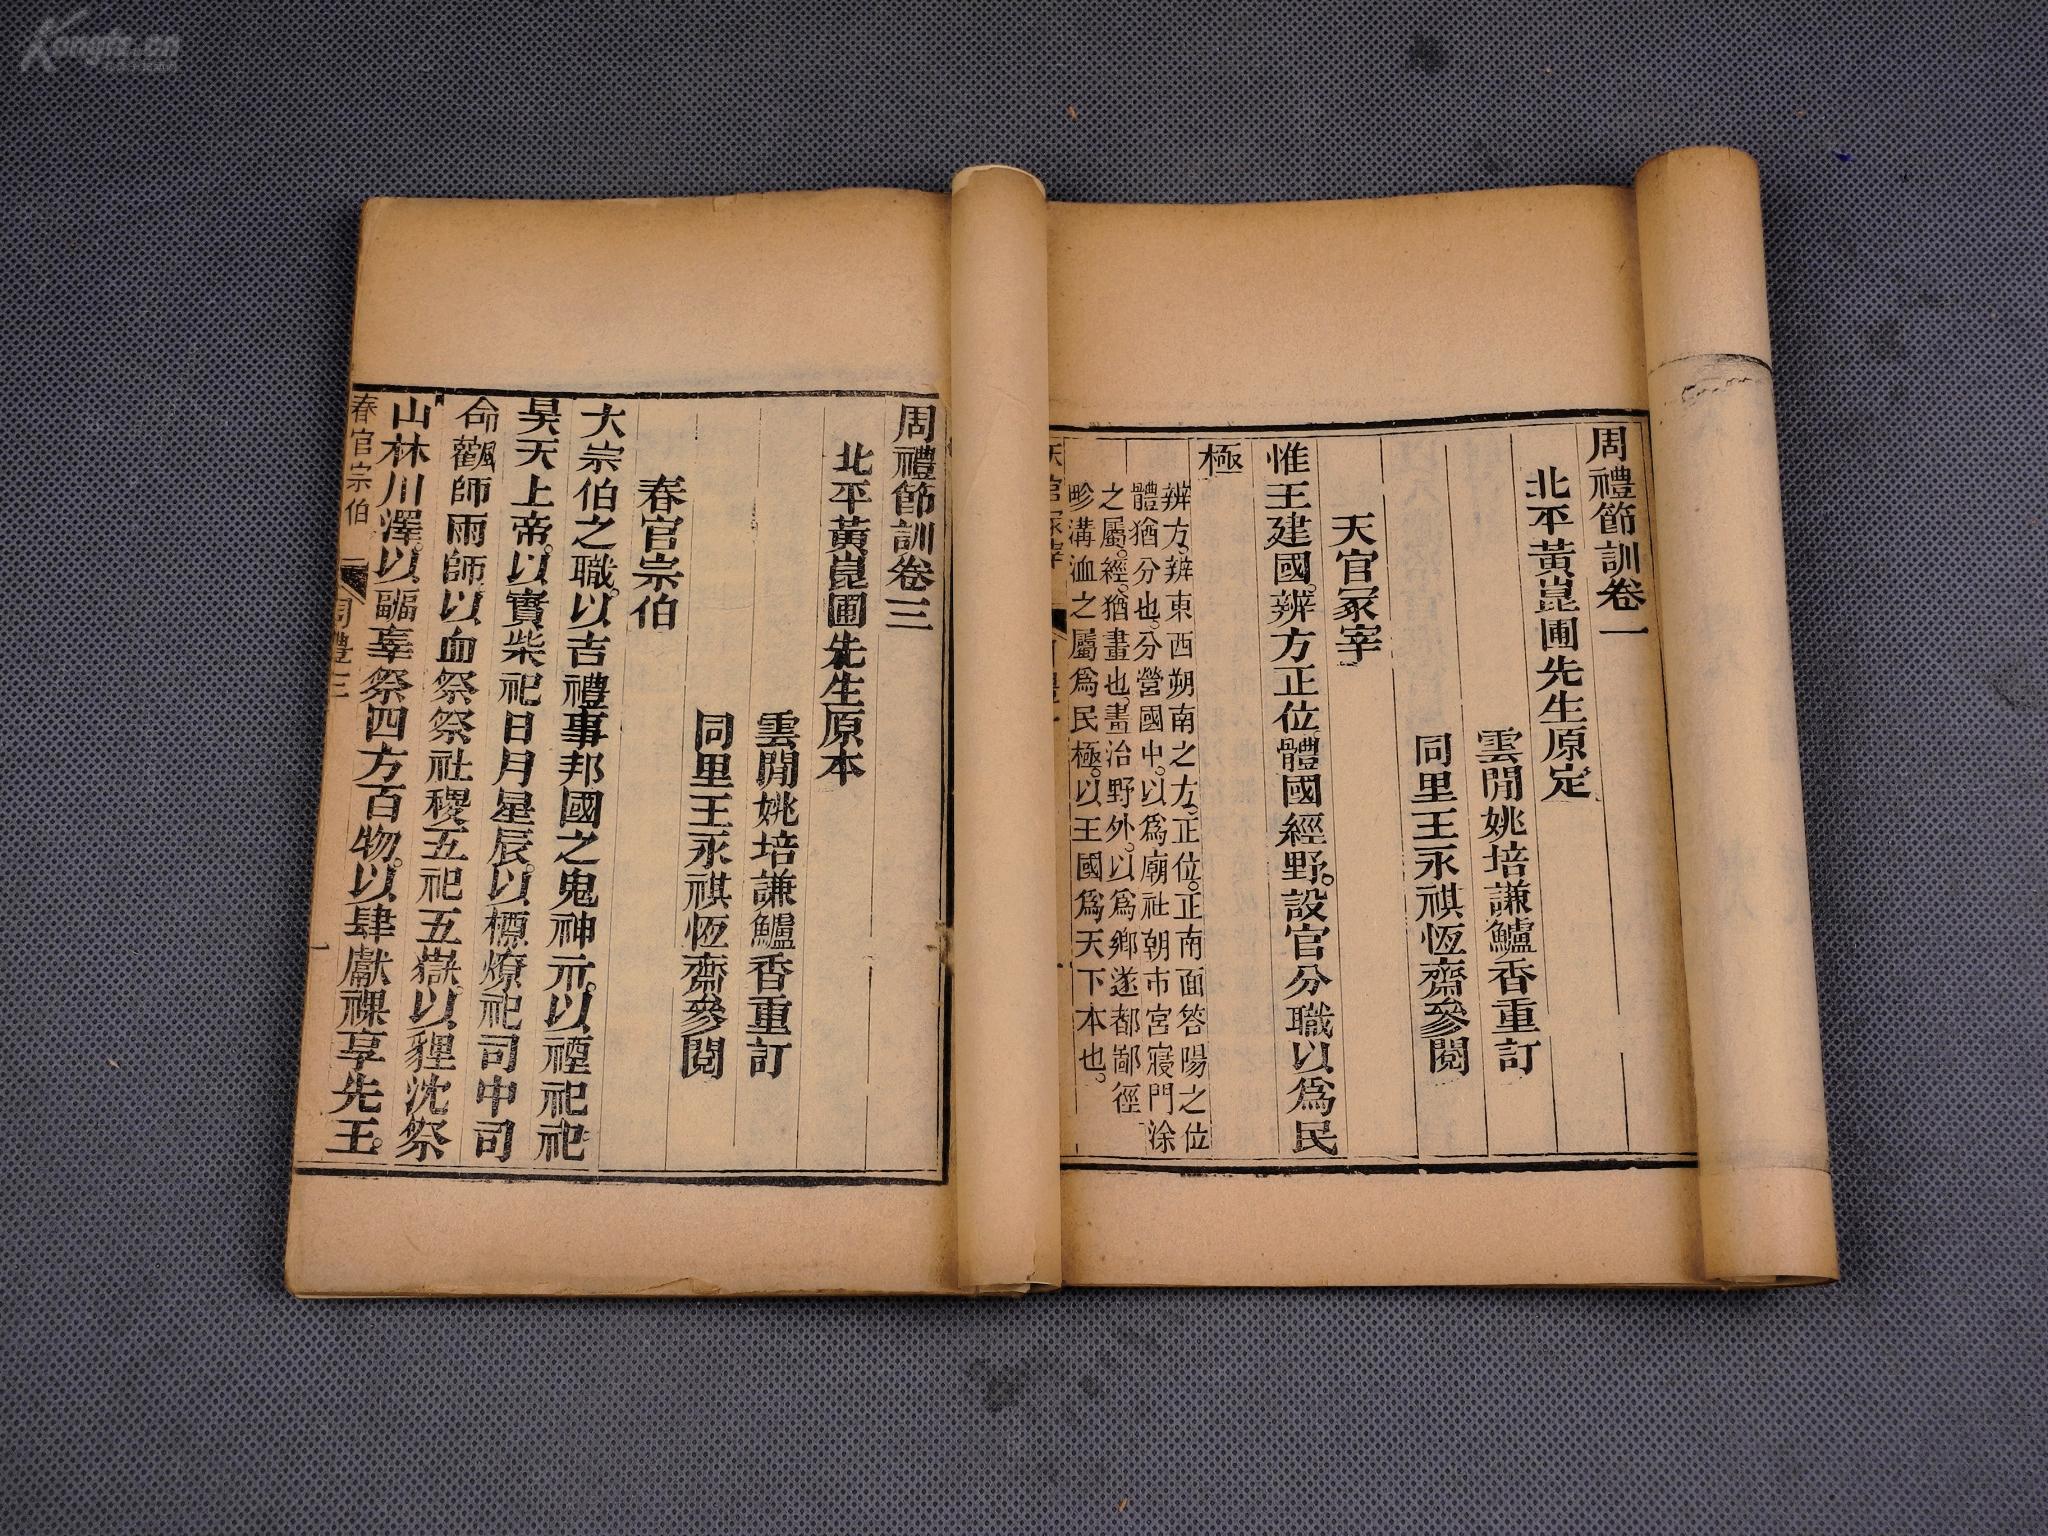 周禮節訓卷一
北平黃崑圃先生原定
雲閒姚培謙鱸香重訂
同里王永祺恆齋參閱
天官冢宰
惟王建國。辨方正位體國經野。設官分職以爲民
極
辨方。辨東西朔南之方。正位。正南面答陽之位
體猶分也。分營國中。以爲廟社朝市宮寢門涂
之屬。經。猶畫也。畫治野外。以爲鄉遂都鄙徑
畛溝洫之屬爲民極。以王國爲天下本也。
天官冢宰
周禮節訓卷三
北平黃崑圃先生原本
雲閒姚培謙鱸香重訂
同里王永祺恆齋參閱
春官宗伯
大宗伯之職。以吉禮事邦國之鬼神示。以禋祀祀
昊天上帝。以實柴祀日月星辰。以槱燎祀司中司
命飌師雨師以血祭祭社稷五祀五嶽。以貍沈祭
山林川澤。以疈辜祭四方百物。以肆獻祼享先王。
春官宗伯
周禮三
一
Kongfz.cn